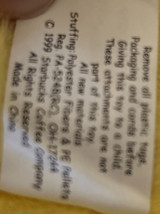 Remove all plastic tags
Packaging and cards before
Giving this toy to a child.
These attachments are not
part of this toy.
All new materials
Stuffing Polyester Fibers & PE Pellets
Reg. PA-5248(RC), OH-17264
© 1999 Starbucks Coffee Company
All Rights Reserved
Made in China